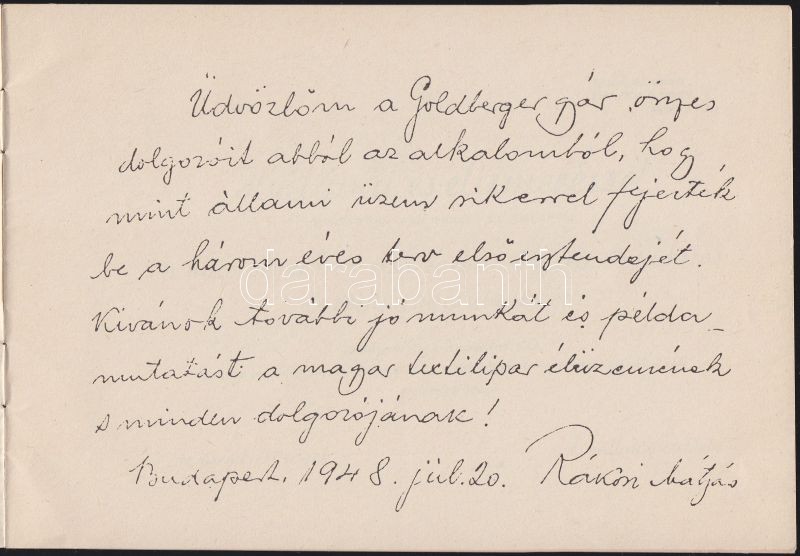 Üdvözlöm a Goldberger gyár összes
dolgozóit abból az alkalomból, hogy
mint állami üzem sikerrel fejezték
be a három éves terv első esztendejét.
Kivánok további jó munkát és példa-
mutatást a magyar textilipar élüzemének
s minden dolgozójának!
Budapest, 1948. júl. 20. Rákosi Mátyás
darabanth